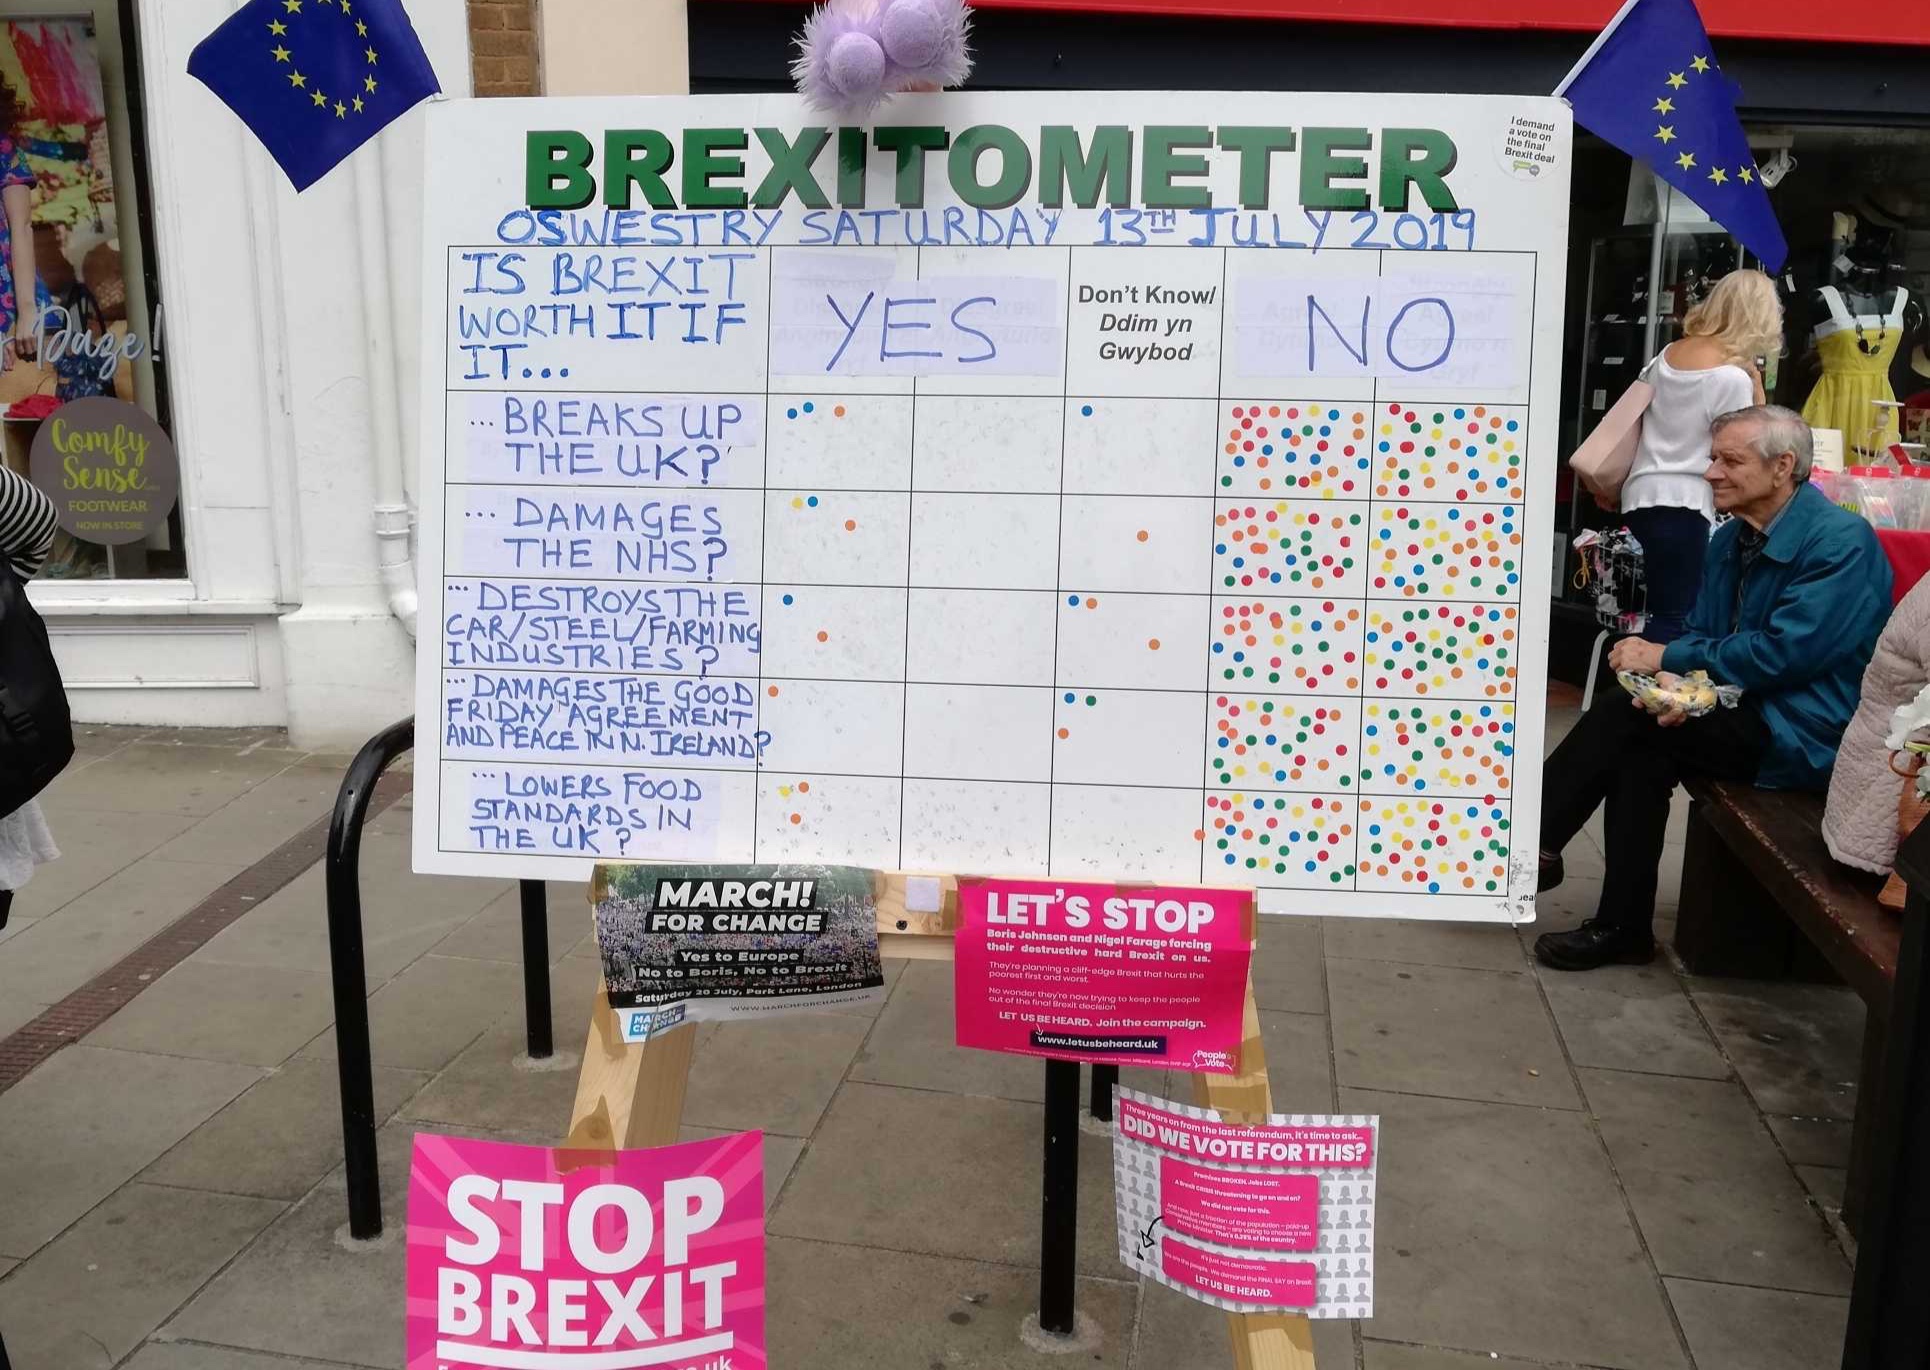 BREXITOMETER
I demand
a vote on
the final
Brexit deal
OSWESTRY SATURDAY 13TH JULY 2019
IS BREXIT
WORTH IT IF
IT...
YES
Don't Know/
Ddim yn
Gwybod
NO
... BREAKS UP
THE UK?
... DAMAGES
THE NHS?
... DESTROYS THE
CAR/STEEL/FARMING
INDUSTRIES?
... DAMAGES THE GOOD
FRIDAY AGREEMENT
AND PEACE IN N. IRELAND?
... LOWERS FOOD
STANDARDS IN
THE UK?
Daze!
Comfy
Sense
FOOTWEAR
NOW IN STORE
MARCH!
FOR CHANGE
Yes to Europe
No to Boris, No to Brexit
Saturday 20 July, Park Lane, London
WWW.MARCHFORCHANGE.UK
MARCH
CHANGE
LET'S STOP
Boris Johnson and Nigel Farage forcing
their destructive hard Brexit on us.
They're planning a cliff-edge Brexit that hurts the
poorest first and worst.
No wonder they're now trying to keep the people
out of the final Brexit decision
LET US BE HEARD, Join the campaign.
www.letusbeheard.uk
People's
Vote
Three years on from the last referendum, it's time to ask...
DID WE VOTE FOR THIS?
Promises BROKEN. Jobs LOST.
A Brexit CRISIS threatening to go on and on?
We did not vote for this.
And now, just a fraction of the population - paid-up
Conservative members - are voting to choose a new
Prime Minister. That's 0.25% of the country.
It's just not democratic.
We are the people. We demand the FINAL SAY on Brexit.
LET US BE HEARD.
STOP
BREXIT